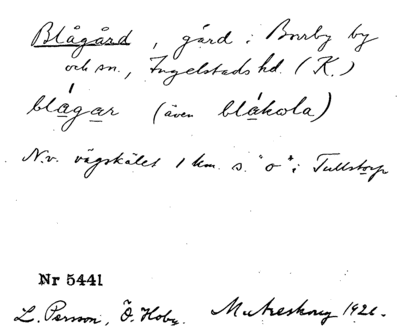 Blågård, gård i Borrby by
och sn., Ingelstads hd. (K.)
blågar (även blåkola)
N.v. vägskälet 1 km. s. "o" i Tullstorp
Nr 5441
L. Persson, Ö. Hoby. 1926.